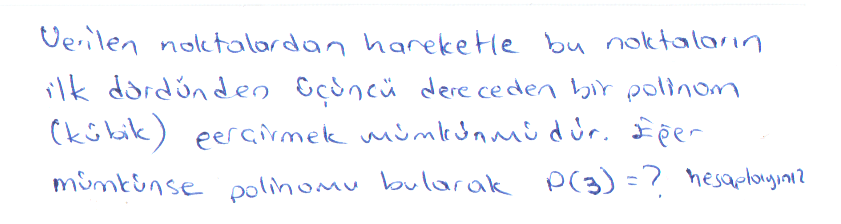 Verilen noktalardan hareketle bu noktaların
ilk dördünden üçüncü dereceden bir polinom
(kübik) geçirmek mümkünmüdür. Eğer
mümkünse polinomu bularak P(3) = ? hesaplayınız